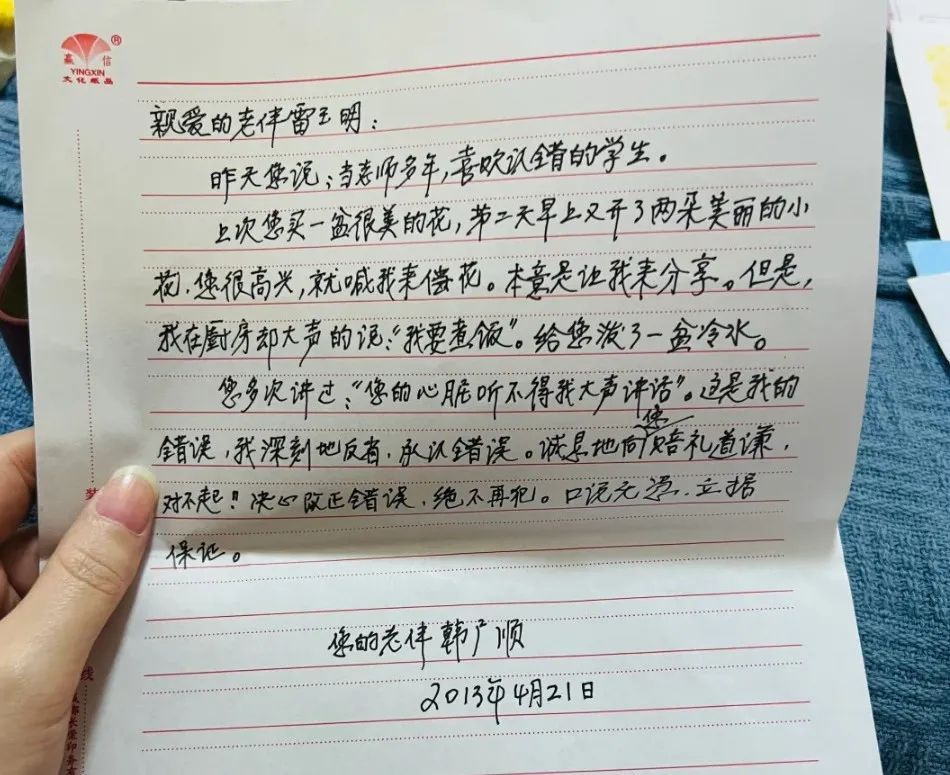 赢 信
®
YINGXIN
文化纸品
亲爱的老伴雷玉明：
昨天您说：当老师多年，喜欢认错的学生。
上次您买一盆很美的花，第二天早上又开了两朵美丽的小
花，您很高兴，就喊我来偿花。本意是让我来分享。但是，
我在厨房却大声的说：“我要煮饭”。给您泼了一盆冷水。
您多次讲过：“您的心脏听不得我大声讲话”。这是我的
错误，我深刻地反省，承认错误。诚恳地向您赔礼道谦，
对不起！！决心改正错误，绝不再犯。口说无凭，立据
保证。
您的老伴韩广顺
2013年4月21日
装
线